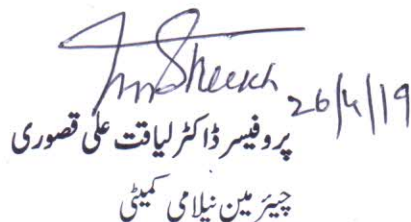 26/4/19
پروفیسر ڈاکٹر لیاقت علی قصوری
چیئر مین نیلامی کمیٹی